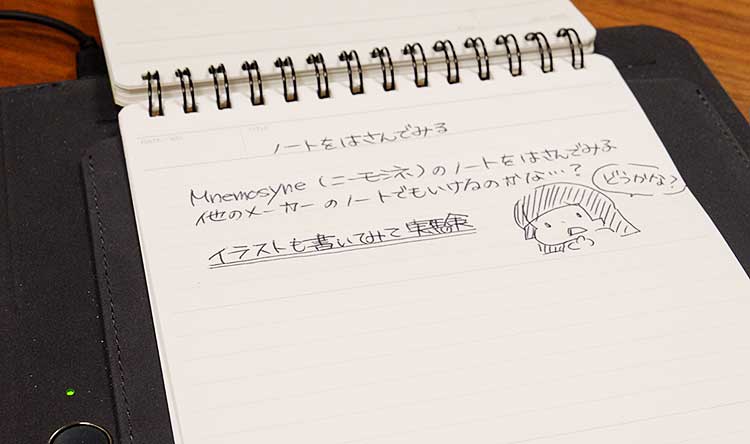 ノートをはさんでみる
Mnemosyne(ニーモシネ)のノートをはさんでみる
他のメーカーのノートでもいけるのかな…?
どうかな?
イラストも書いてみて実験